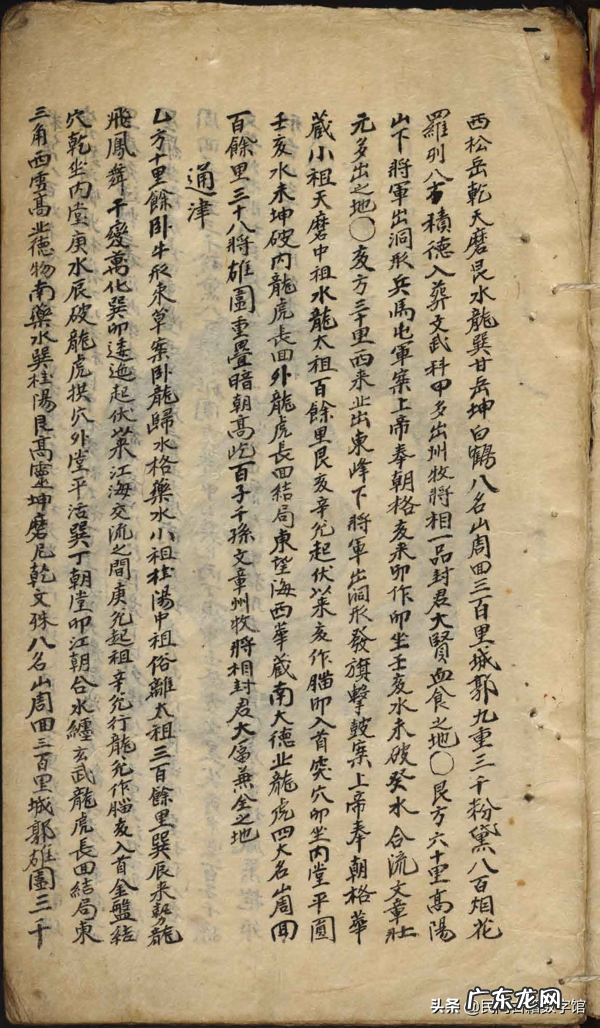 西松岳乾天磨艮水龍巽甘岳坤白鶴八名山周回三百里城郭九重三千粉黛八百烟花
羅列八方積德入葬文武科甲多出州牧將相一品封君大賢血食之地〇艮方六十里高陽
山下將軍出洞形兵馬屯軍案上帝奉朝格亥来卯作卯坐壬亥水未破癸水合流文章壯
元多出之地〇亥方三十里西来北出東峰下將軍出洞形發旗擊鼓案上帝奉朝格華
蔵小祖天磨中祖水龍太祖百餘里艮亥辛兊起伏以来亥作腦卯入首突穴卯坐内堂平圓
壬亥水未坤破内龍虎長回外龍虎長回結局東望海西華蔵南大德北龍虎四大名山周回
百餘里三十八將雄圍重疊暗朝高屹百子千孫文章州牧將相封君大富兼全之地
通津
乙方十里餘卧牛形束草案卧龍歸水格藥水小祖桂陽中祖俗離太祖三百餘里巽辰来勢龍
飛鳳舞千變萬化巽卯逶迤起伏以来江海交流之間庚兊起祖辛兊行龍兊作腦亥入首金盤結
穴乾坐内堂庚水辰破龍虎拱穴外堂平活巽丁朝堂卯江朝合水纏玄武龍虎長回結局東
三角西雪高北德物南藥水巽桂陽艮高靈坤磨尼乾文殊八名山周回三百里城郭雄圍三千
广东龙网
头条